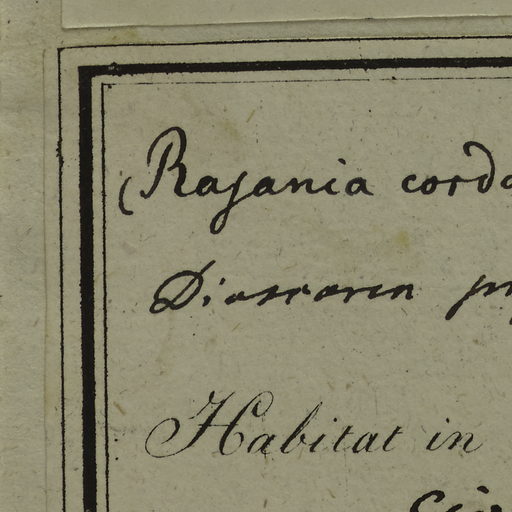 (Rajania corda
Dioscorea
Habitat in